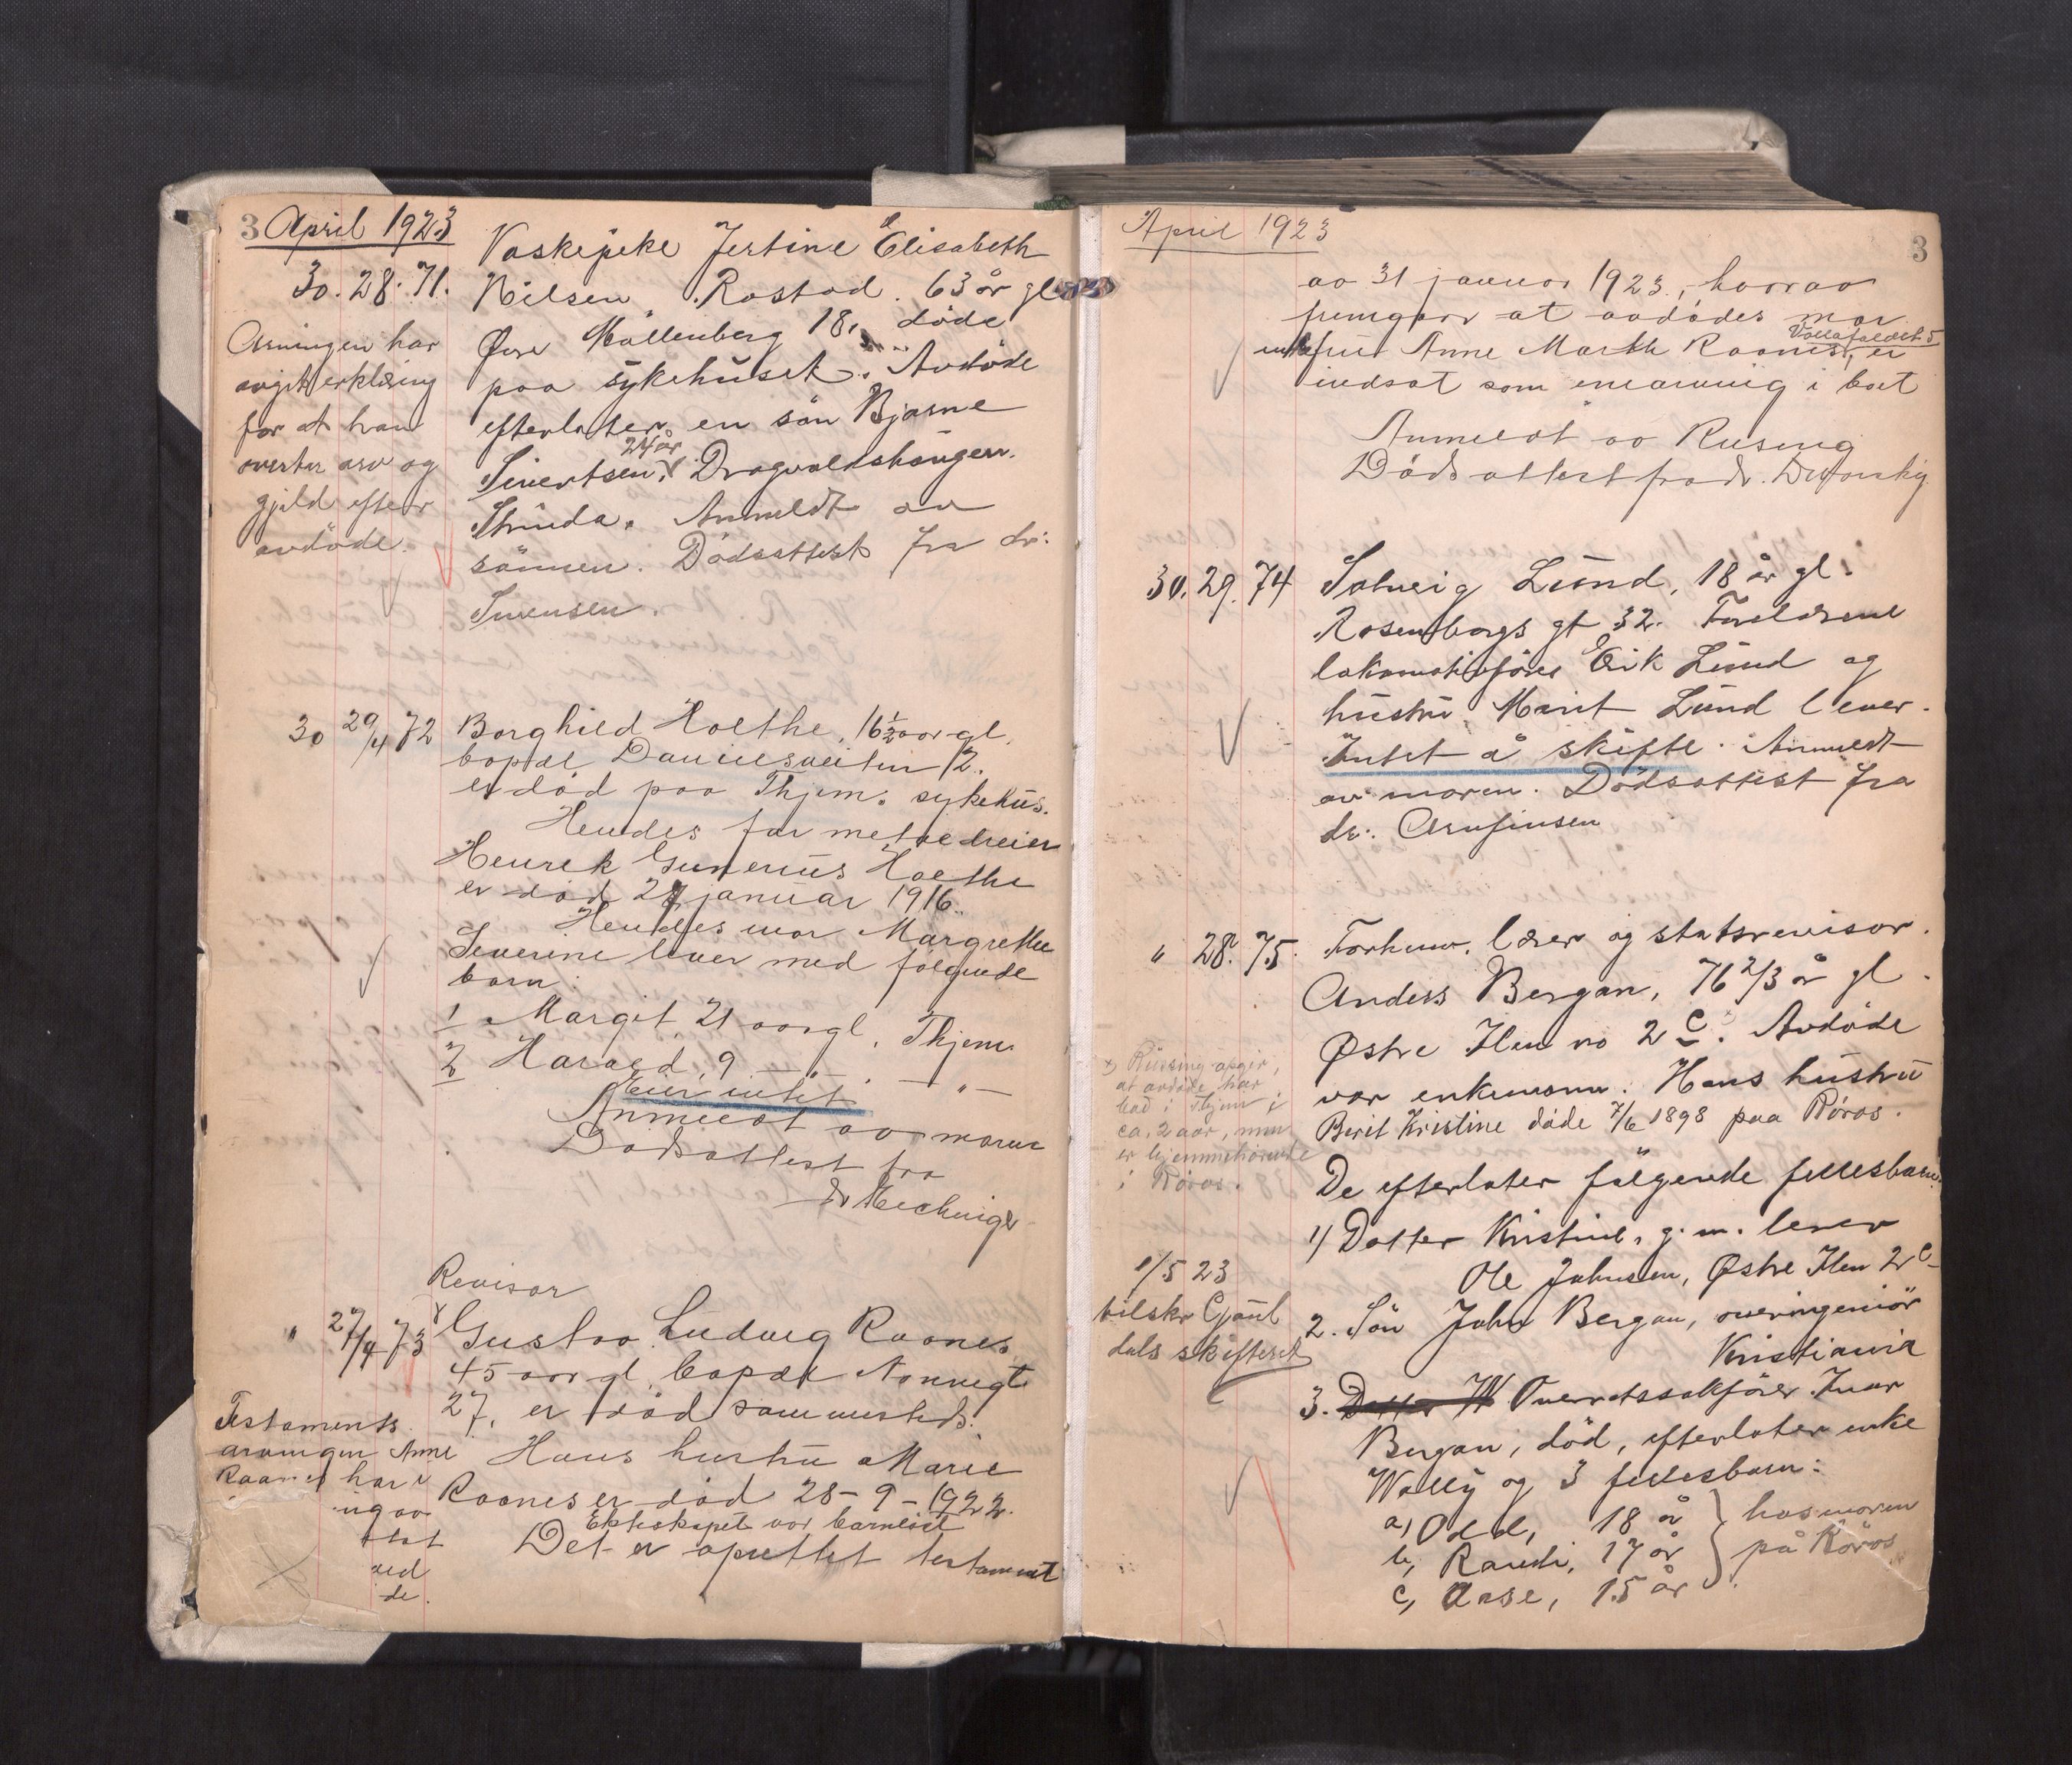 3 April 1923
30. 28. 71.
Vaskepike Jertine Elisabeth
Nilsen Rostad. 63 år gl
Øvre Møllenberg 18, døde
paa sykehuset. Avdøde
efterlater en søn Bjarne
24 år
Sivertsen, Dragvolshaugen.
Strinda. Anmeldt av
sønnen. Dødsattest fra dr:
Sørensen.
Arvingen har
avgit erklæring
for at han
overtar arv og
gjeld efter
avdøde.
30 29/4 72
Borghild Holthe, 16 1/2 aar gl.
bopæl Danielsveiten 12.
er død paa Thjem. sykehus.
Hendes far metaldreier
Henrik Gunerius Holthe
er død 27 januar 1916.
Hendes mor Margrethe
Severine lever med følgende
barn:
1 Margit 21 aar gl. Thjem
2 Harald, 9 — " — — " —
Eier intet
Anmeldt av moren
Dødsattest fra
Dr
Revisor
" 27/4 73
Gustav Ludvig Raanes
45 aar gl, bopæl Nonnegt
27, er død sammesteds.
Hans hustru Marie
Raanes er død 28-9-1922.
Ekteskapet var barnløst
Det er oprettet testament
Testaments
arvingen Anne
Raanes har i
ug av
tat
ved
de.
April 1923
3
av 31 januar 1923, hvorav
fremgaar at avdødes mor
Vollafaldet 5
enkefru Anne Marth Raanes, er
indsat som enearving i boet
Anmeldt av Rusing
Dødsattest fra dr.
30. 29. 74
Solveig Lund, 18 år gl.
Rosenborgs gt 32. Forældrene
lokomotivfører Erik Lund og
hustru Marit Lund lever.
Intet å skifte. Anmeldt
av moren. Dødsattest fra
dr: Arnfinsen
" 28. 75.
Forhenv. lærer og statsrevisor
Anders Bergan, 76 2/3 år gl.
Østre Ilen no 2 c. Avdøde
var enkemann. Hans hustru
Berit Kristine døde 7/6 1898 paa Röros.
De efterlater følgende fellesbarn:
1) Datter Kristine, g. m. lærer
Ole Johnsen, Østre Ilen 2 c
2. Søn John Bergan, overingeniør
Kristiania
3. Overretssakfører Ivar
Bergan, død, efterlater enke
Wally og 3 fellesbarn:
a, Odd, 18 år
b, Randi, 17 år
c, Aase, 15 år
hos moren
på Röros
x) Rüsing opgir,
at avdøde har
bod i Thjem i
ca. 2 aar, men
er hjemmehørende
i Röros.
1/5 23
tilskr Gaul
dals skifteret